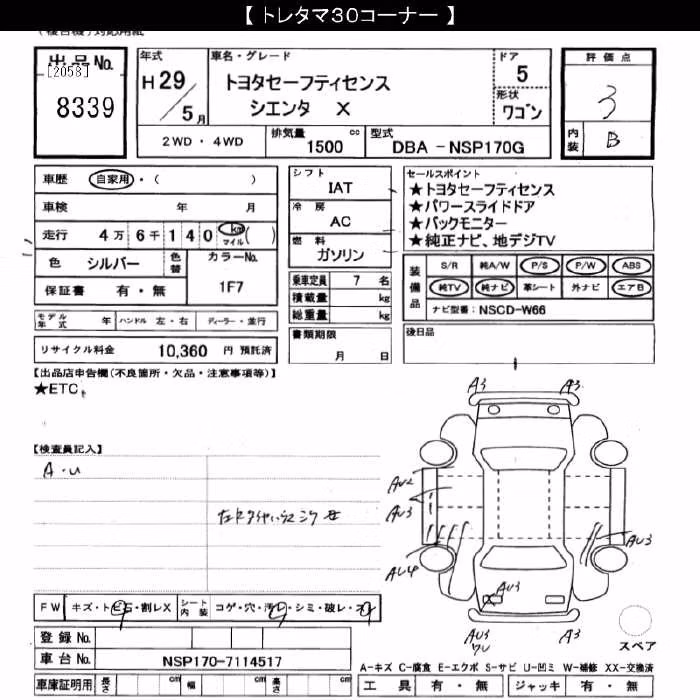 【 トレタマ３０コーナー 】
(複合機)対応用紙
出品No.
[2058]
8339
年式
H29/5月
車名・グレード
トヨタセーフティセンス
シエンタ X
ドア
5
形状
ワゴン
2WD ・ 4WD
排気量
1500 cc
型式
DBA - NSP170G
評価点
3
内装
B
車歴 自家用 ・ ( )
車検 年 月
走行 4万 6千 1 4 0 km マイル ( )
色 シルバー 色替
カラーNo.
1F7
保証書 有 ・ 無
モデル年式 年 ハンドル 左 ・ 右 ディーラー ・ 並行
リサイクル料金 10,360 円 預託済
シフト
IAT
冷房
AC
燃料
ガソリン
乗車定員 7 名
積載量 kg
総重量 kg
書類期限
月 日
セールスポイント
★トヨタセーフティセンス
★パワースライドドア
★バックモニター
★純正ナビ、地デジTV
装備品
S/R 純A/W P/S P/W ABS
純TV 純ナビ 革シート 外ナビ エアB
ナビ型番：NSCD-W66
後日品
【出品店申告欄(不良箇所・欠品・注意事項等)】
★ETC
【検査員記入】
A・U
A3
A3
AU2
AU3
AU4
AU3
AU3
AU3
A3
FW キズ・トビ石・割レX シート内装 コゲ・穴・汚レ・シミ・破レ・
登録No.
車台No. NSP170-7114517
車庫証明用 長さ cm 幅 cm 高さ cm
スペア
A-キズ C-腐食 E-エクボ S-サビ U-凹ミ W-補修 XX-交換済
工具 有 ・ 無 ジャッキ 有 ・ 無